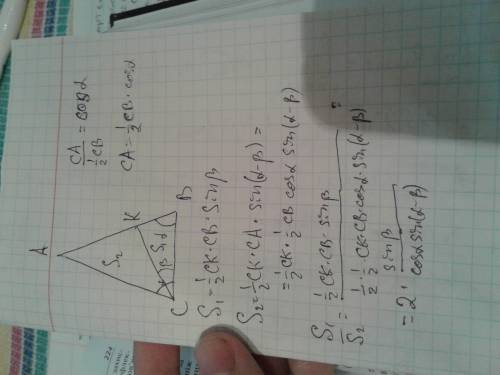 A
S₂
K
β S₁ α
C
B
CA / ½CB = cosα
CA = ½CB·cosα
S₁ = ½CK·CB·sinβ
S₂ = ½CK·CA·sin(α-β) =
= ½CK·½CB cosα sin(α-β)
S₁/S₂ = ½·CK·CB·sinβ / ½·½·CK·CB·cosα·sin(α-β) =
= 2· sinβ / cosα sin(α-β)
224